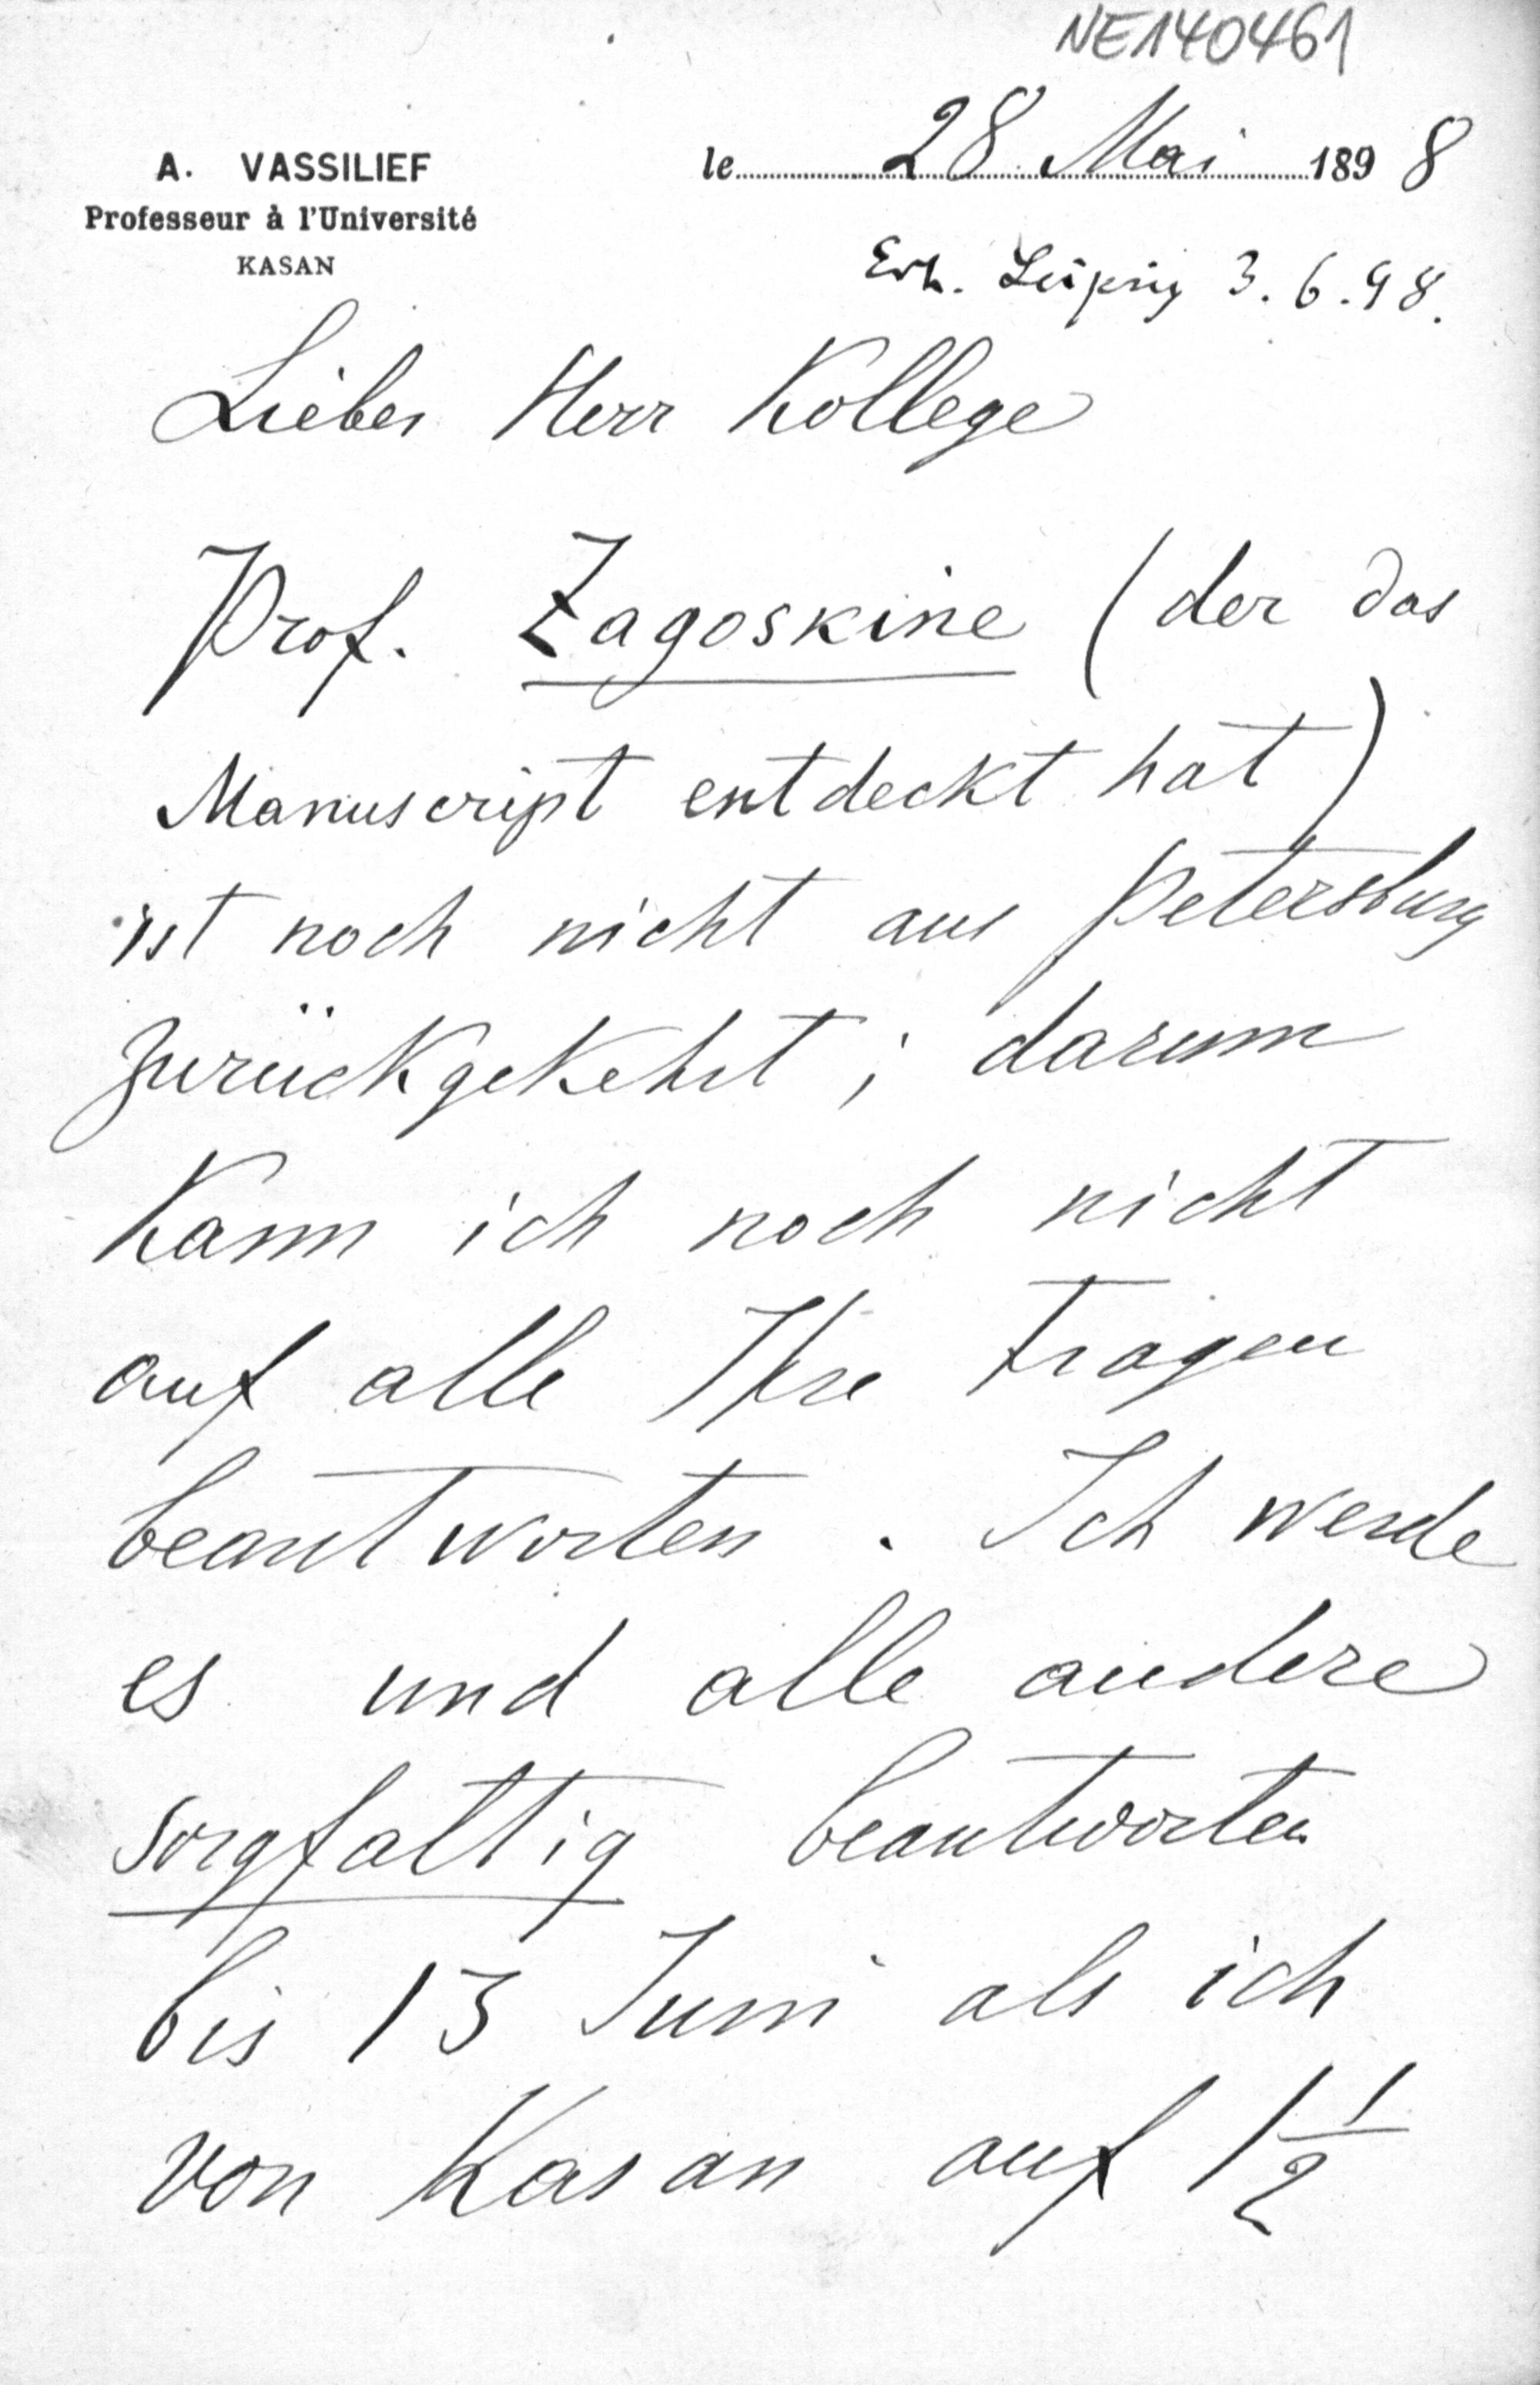 NE140461
A. VASSILIEF
Professeur à l'Université
KASAN
le 28 Mai 1898
Erh. Leipzig 3.6.98.
Lieber Herr Kollege
Prof. Zagoskine (der das
Manuscript entdeckt hat)
ist noch nicht aus Petersburg
zurückgekehrt; darum
kann ich noch nicht
auf alle Ihre Fragen
beantworten. Ich werde
es und alle andere
sorgfaltig beantworten
bis 13 Juni als ich
von Kasan auf 1 1/2